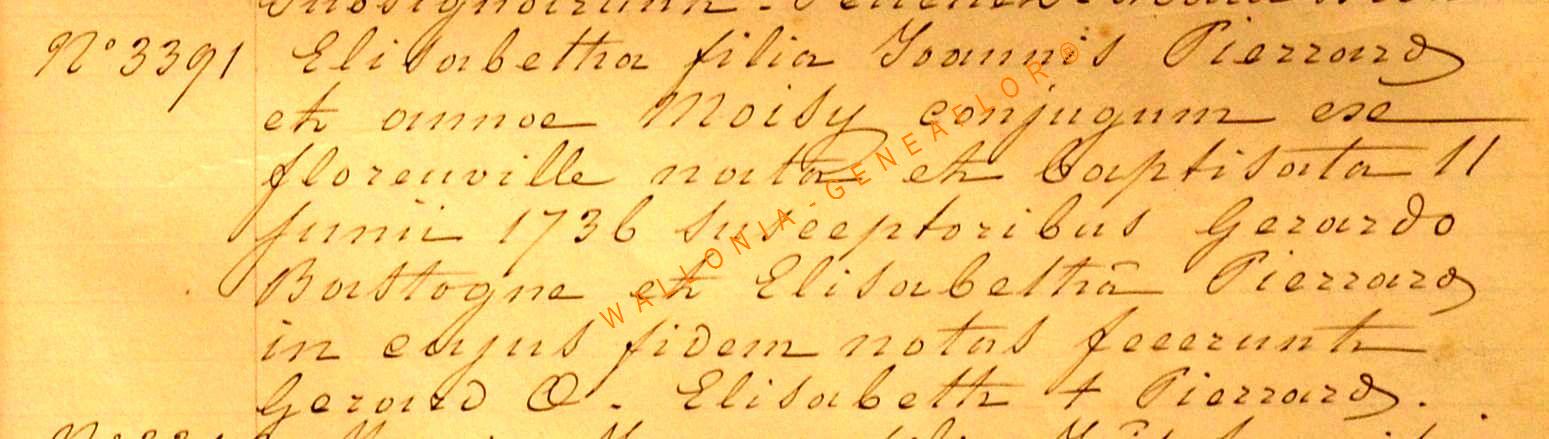 N° 3391 Elisabetha filia Joannis Pierrard
et annae Moisy conjugum ex
florenville nata et baptisata 11
junii 1736 susceptoribus Gerardo
Bastogne et Elisabetha Pierrard
in cujus fidem notas fecerunt
Gerard O. Elisabeth + Pierrard.
WALLONIA-GENEAFLOR®